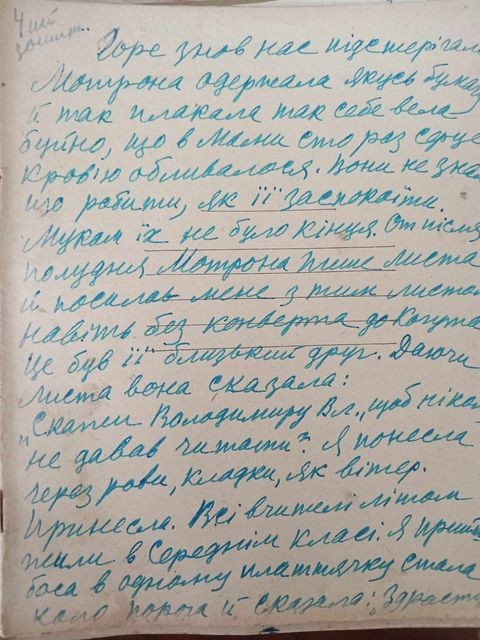 4 ий
зошит.
Горе знов нас підстерігал
Мотрона одержала якусь бумаж
й так плакала так себе вела
буйно, що в Мами сто раз серце
кров'ю обливалося. Вони не зна
що робити, як її заспокоїти.
Мукам їх не було кінця. От після
полудня Мотрона пише листа
й посилає мене з тим листом
навіть без конверта до Когута
це був її близький друг. Даючи
листа вона сказала:
"Скажи Володимиру Вл., щоб ніком
не давав читати". Я понесла
через рови, кладки, як вітер.
Принесла. Всі вчителі літом
жили в Середнім класі. Я прийш
боса в одному платтячку стала
коло порога й сказала: "Здрасту